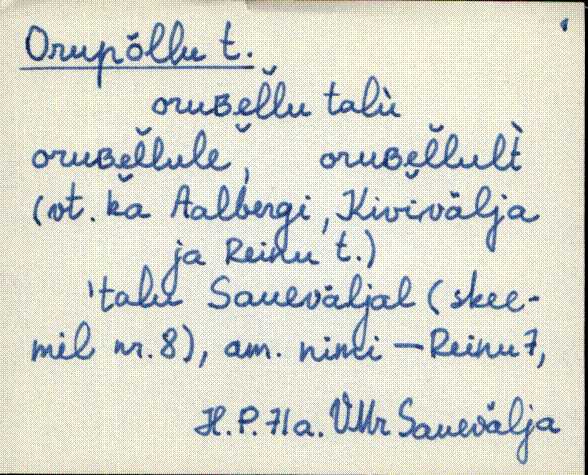 Orupõllu t.
oruʙel̆lu talù
oruʙel̆lule, oruʙel̆lult̀
(vt. ka Aalbergi, Kivivälja
ja Reinu t.)
'talu Saueväljal (skee-
mil nr. 8), am. nimi — Reinu 7,
H.P. 71a. VMr Sauevälja